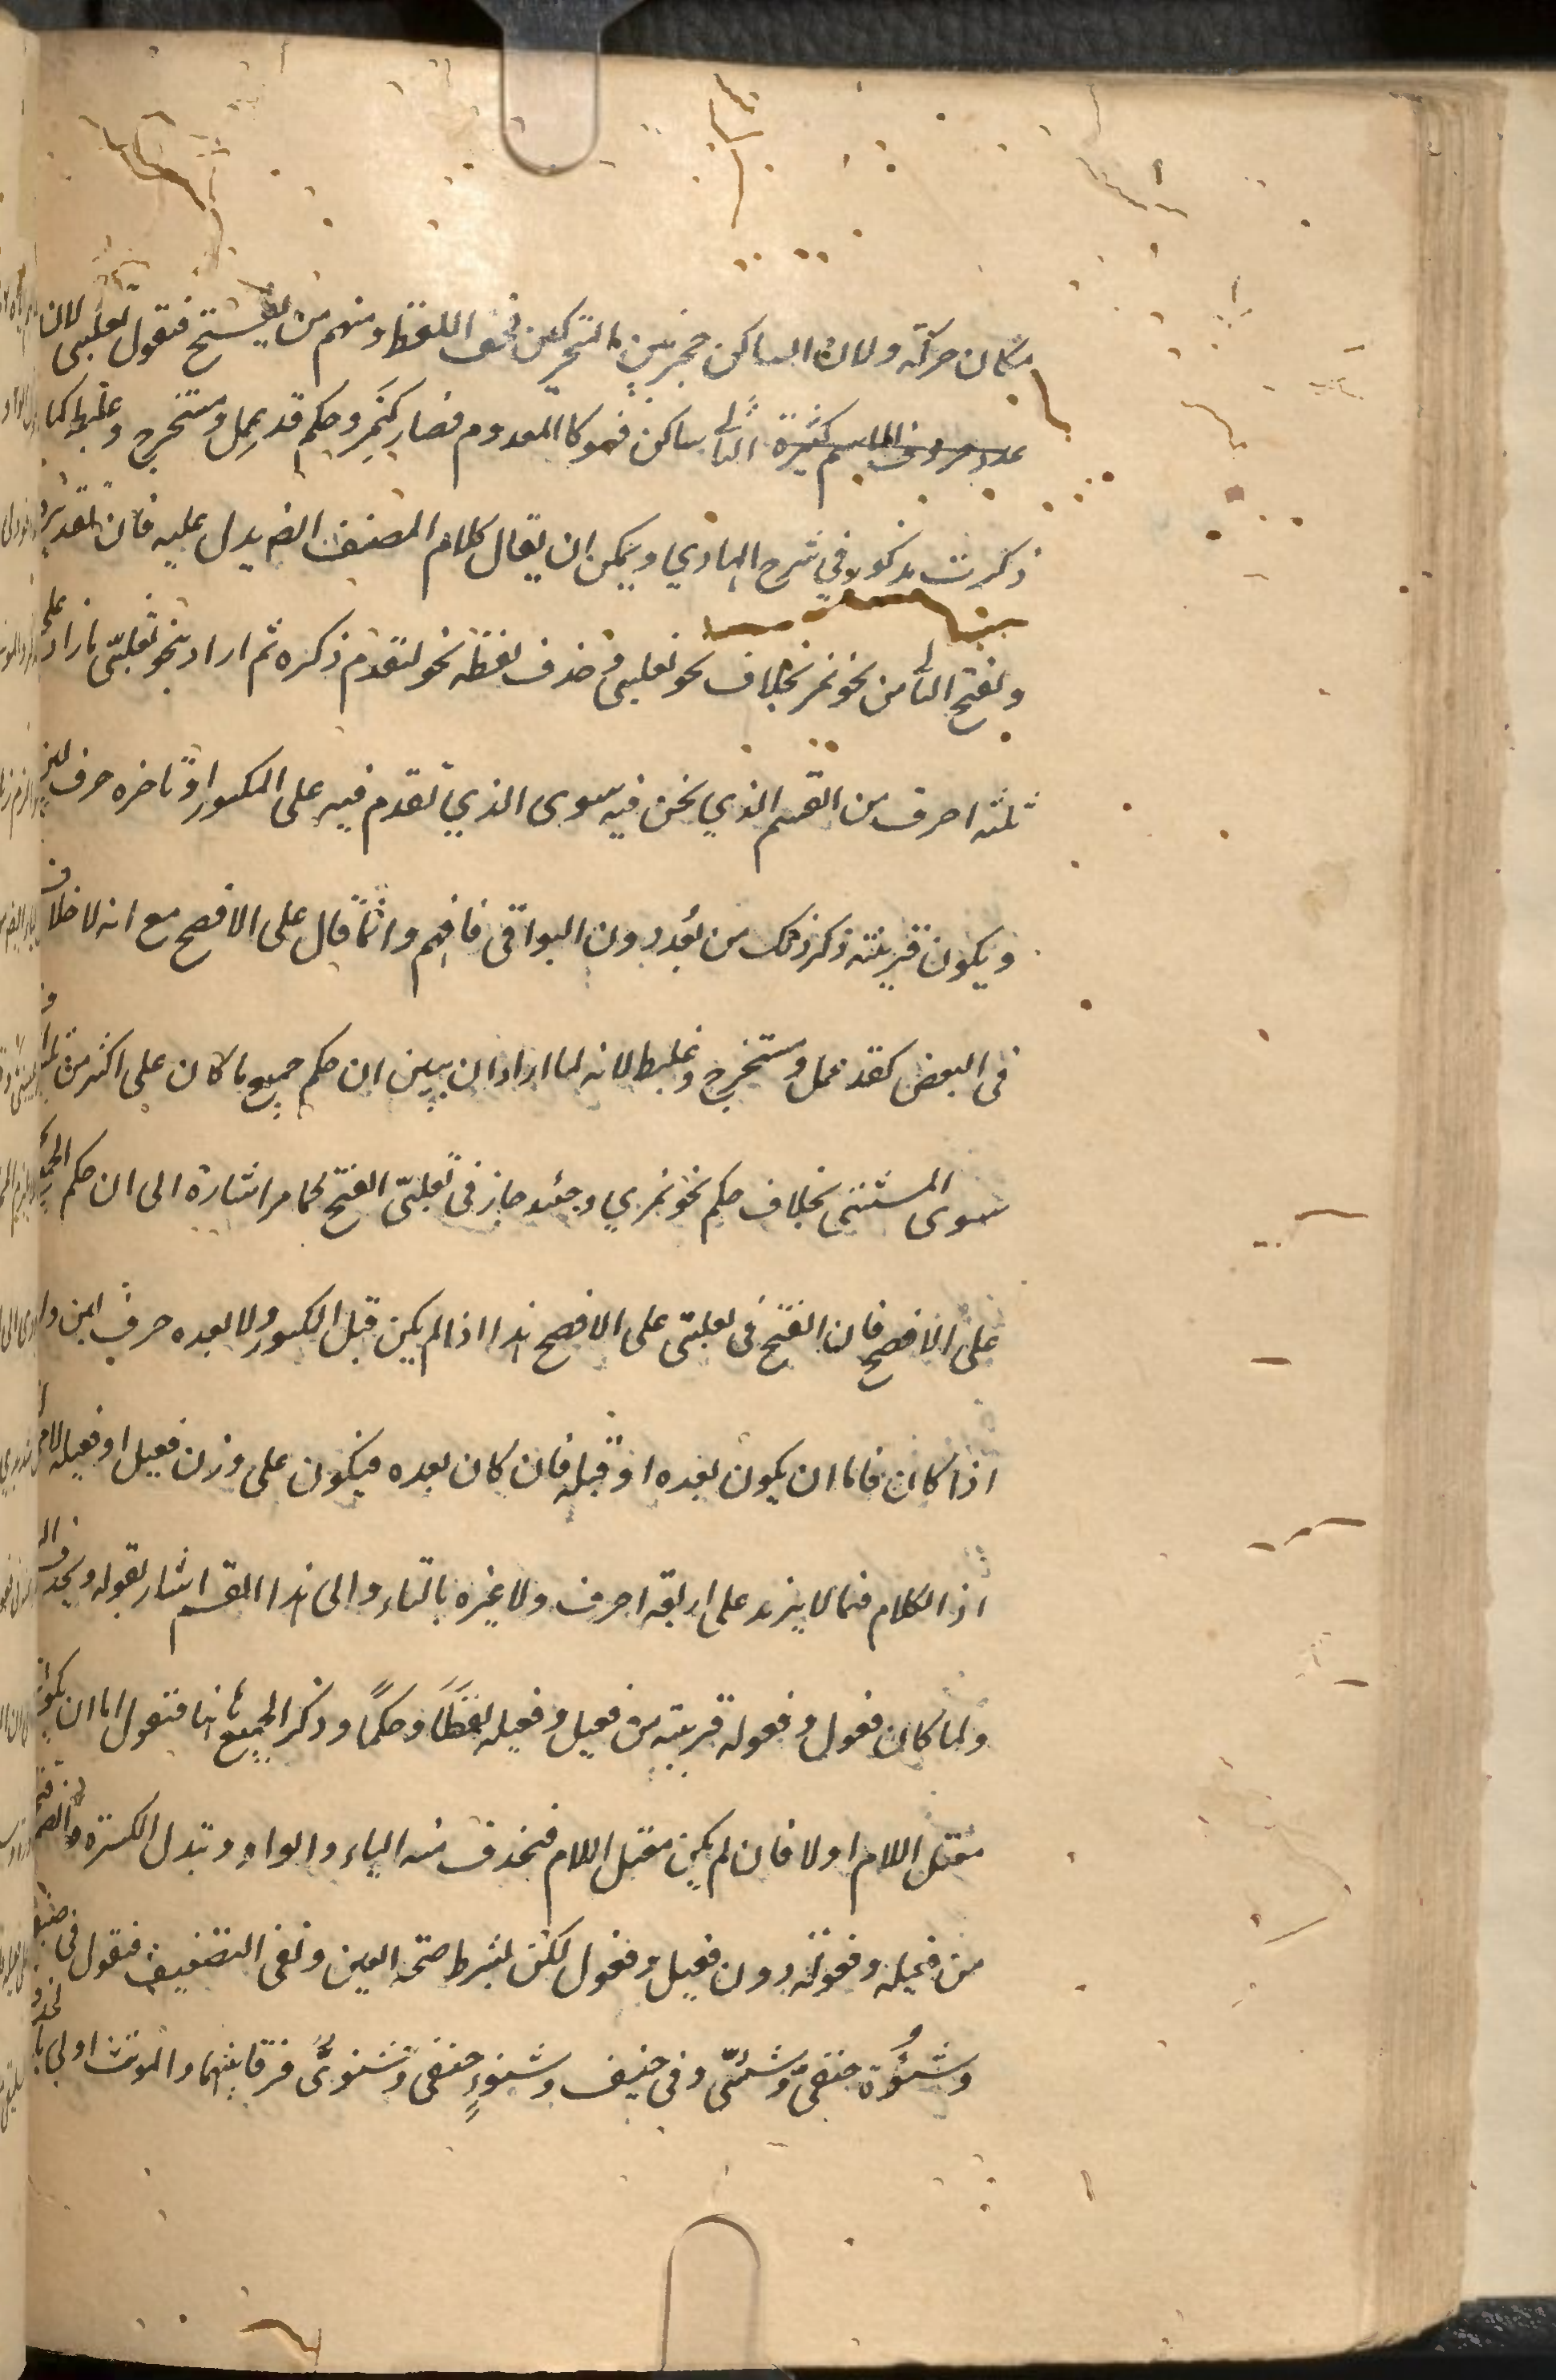 مكان حركته ولان الساكن حجز بين المتحركين فخف اللفظ ومنهم من يفتح فتقول تغلبى لان
عدد حروف الاسم كثيرة الثانى ساكن فهو كالمعدوم فصار كنمر وحكم قد عمل ومستخرج وعلبط كما
ذكرت مذكور في شرح الهادي ويمكن ان يقال كلام المصنف ايض يدل عليه فان تقديره
وبفتح الثانى من نحو نمر بخلاف نحو تغلبى فحذف لفظه نحو لتقدم ذكره ثم اراد بنحو تغلبى ما زاد على
ثلثه احرف من القسم الذي نحن فيه سوى الذي تقدم فيه على المكسور او تاخره حرف لين
ويكون قرينته ذكر ذلك من بعد دون البواقى فافهم وانما قال على الافصح مع انه لا خلاف
فى البعض كقد عمل ومستخرج وعلبط لانه لما اراد ان يبين ان حكم جميع ما كان على اكثر من ثلثة
سوى المستثنى بخلاف حكم نحو نمري وجند جاز فى تغلبى الفتح لما مر اشارة الى ان حكم الجميع
على الافصح فان الفتح فى تغلبى على الافصح هذا اذا لم يكن قبل المكسور ولا بعده حرف لين واما
اذا كان فاما ان يكون بعده او قبله فان كان بعده فيكون على وزن فعيل او فعيله لا
اذ الكلام فيما لا يزيد على اربعة احرف ولا غيره بالتاء والى هذا القسم اشار بقوله ويحذف
ولما كان فعول وفعوله قريبة من فعيل وفعيله لفظا وحكما وذكر الجميع هاهنا فنقول اما ان يكون
معتل اللام او لا فان لم يكن معتل اللام فيحذف منه الياء والواو وتبدل الكسرة والضمة فتحة
من فعيله وفعوله دون فعيل وفعول لكن بشرط صحة العين ونفى التضعيف فتقول فى حنيفة
وشنوءة حنفى وشنئى وفى حنيف وشنوء حنيفى وشنوئى فرقا بينهما والمونث اولى بالحذف